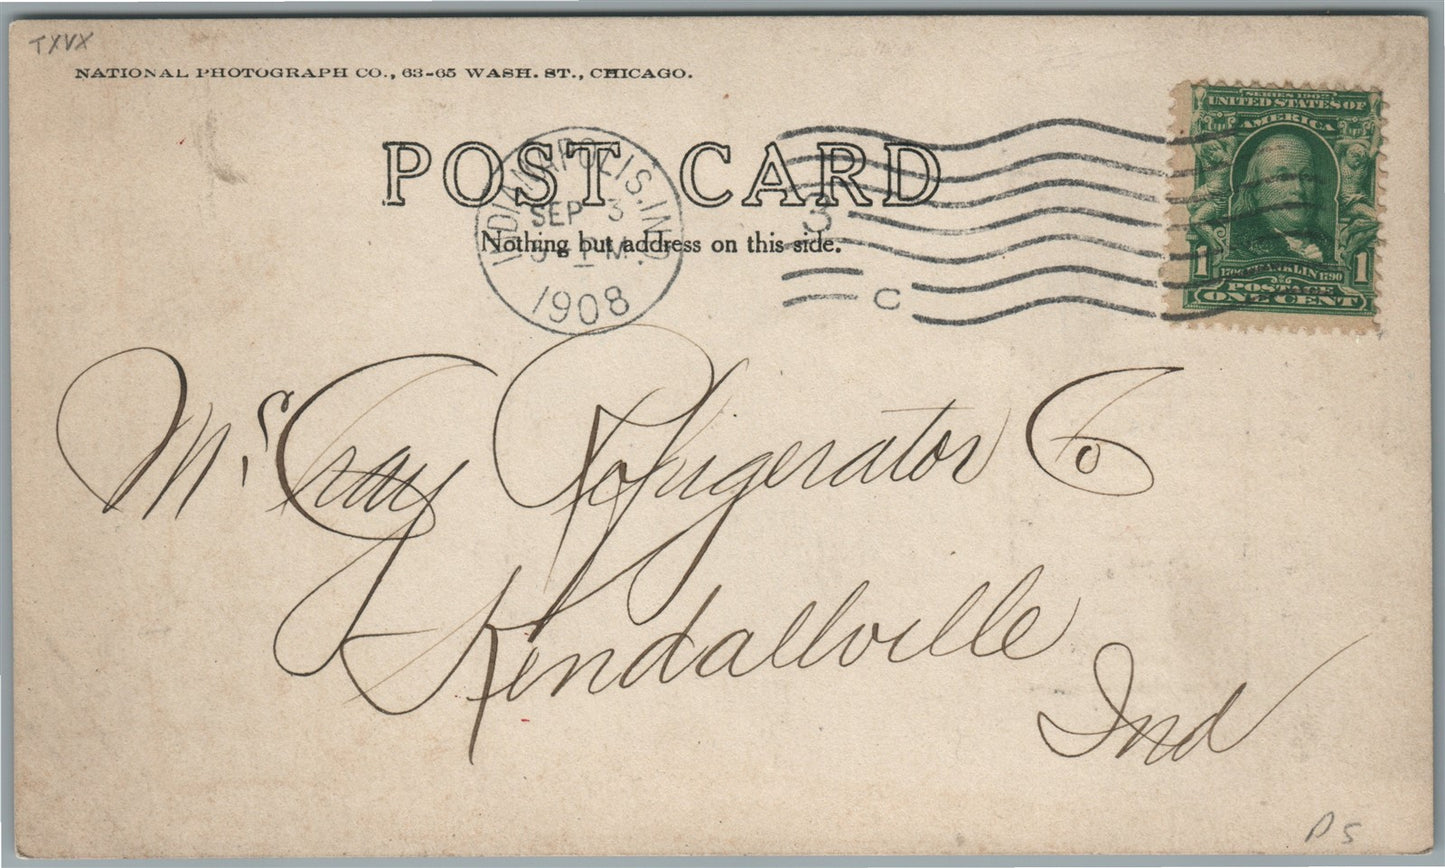 TXVX
NATIONAL PHOTOGRAPH CO., 63-65 WASH. ST., CHICAGO.
POST CARD
Nothing but address on this side.
INDIANAPOLIS, IND.
SEP 3
1908
3
C
SERIES 1902
UNITED STATES OF
AMERICA
1 1
1706 FRANKLIN 1790
POSTAGE
ONE CENT
McCray Refrigerator Co
Kendallville
Ind